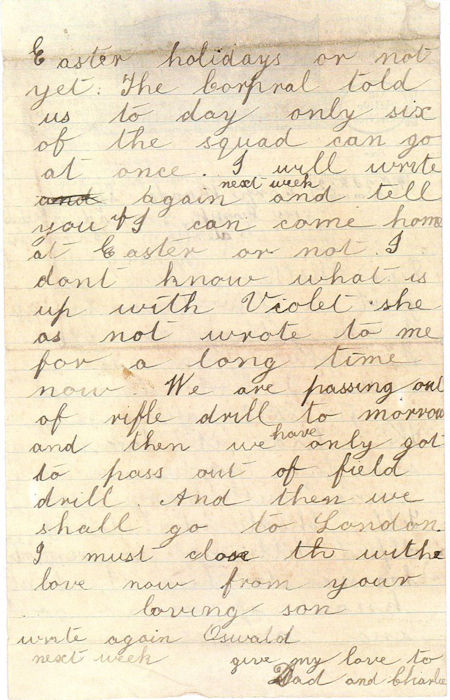 Easter holidays or not
yet. The Corpral told
us to day only six
of the squad can go
at once. I will write
next week
and again and tell
you if I can come home
at Easter or not. I
dont know what is
up with Violet she
as not wrote to me
for a long time
now. We are passing out
of rifle drill to morrow
have
and then we only got
to pass out of field
drill. And then we
shall go to London.
I must close th withe
love now from your
loving son
write again Oswald
next week give my love to
Dad and Charlie